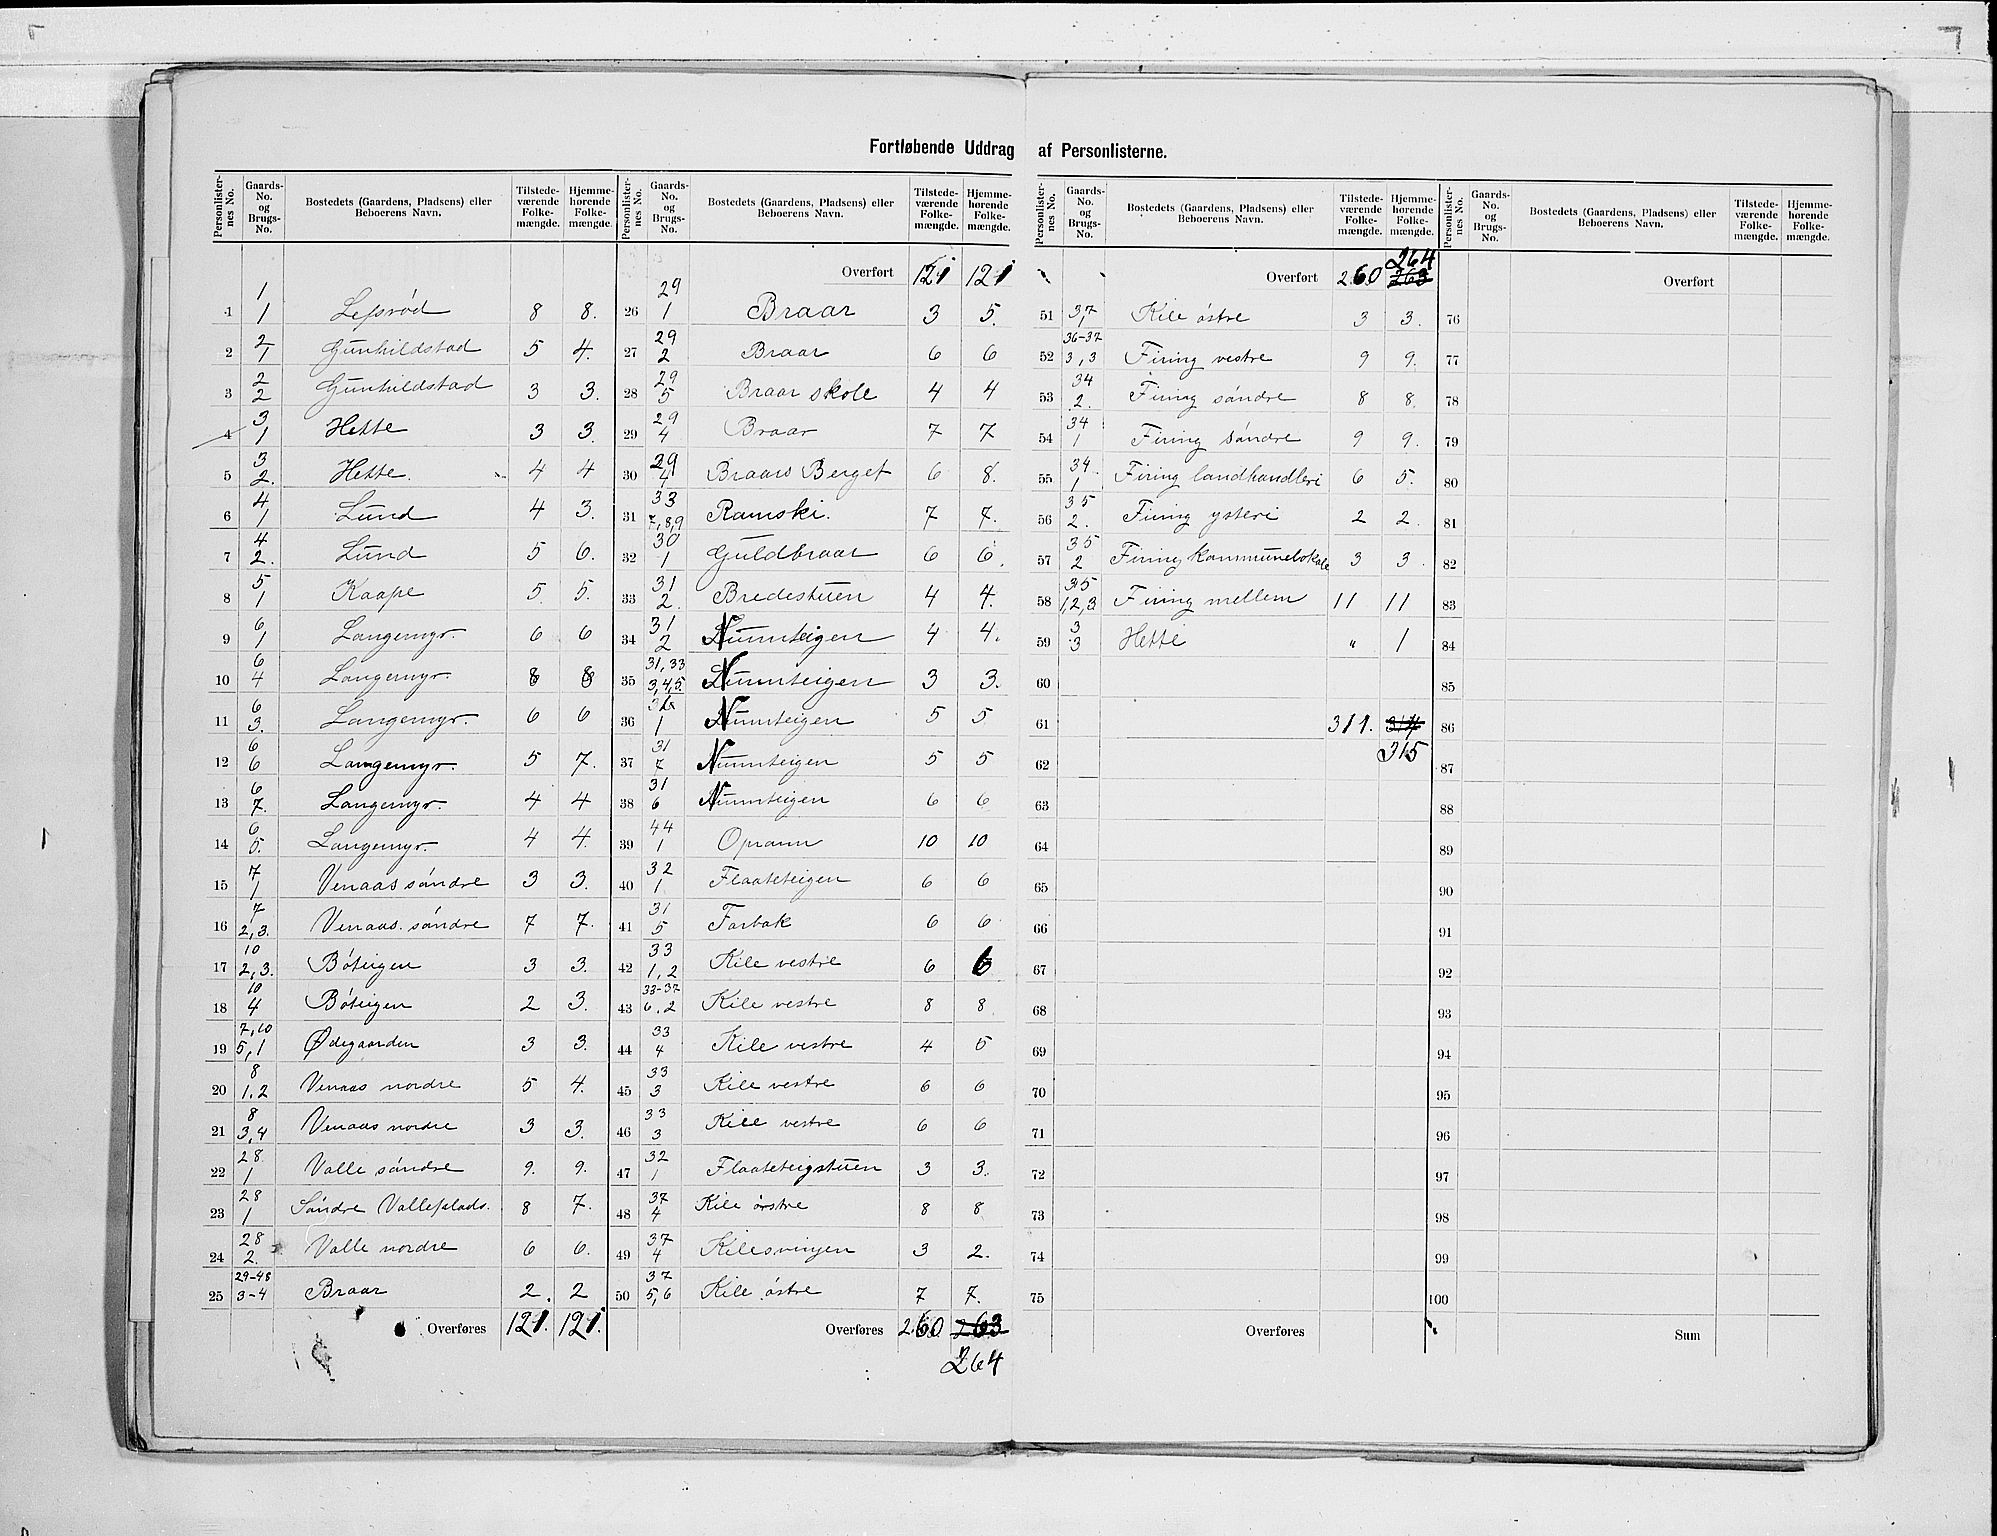 Fortløbende Uddrag af Personlisterne.
Personlisternes No. Gaards-No. og Brugs-No. Bostedets (Gaardens, Pladsens) eller Beboerens Navn. Tilstedeværende Folkemængde. Hjemmehørende Folkemængde.
1 1/1 Lefsrød 8 8.
2 2/1 Gunhildstad 5 4.
3 2/2 Gunhildstad 3 3.
4 3/1 Hette 3 3.
5 3/2. Hette. 4 4
6 4/1 Lund 4 3.
7 4/2. Lund 5 6.
8 5/1 Kaape 5. 5.
9 6/1 Langemyr. 6 6
10 6/4 Langemyr. 8 8
11 6/3. Langemyr. 6 6
12 6/6 Langemyr. 5 7.
13 6/7. Langemyr. 4 4
14 6/5. Langemyr. 4 4.
15 7/1 Venaas søndre 3 3.
16 7/2,3. Venaas. søndre 7 7.
17 10/2,3. Bøteigen 3 3.
18 10/4 Bøteigen 2 3.
19 7,10/5,1 Ødegaarden 3 3.
20 8/1.2 Venaas nordre 5 4.
21 8/3,4 Venaas nordre 3 3.
22 28./1 Valle søndre 9. 9.
23 28/1 Søndre Valleplads. 8 7.
24 28/2. Valle nordre 6 6.
25 29-48/3-4 Braar 2. 2
Overføres 121. 121.
Personlisternes No. Gaards-No. og Brugs-No. Bostedets (Gaardens, Pladsens) eller Beboerens Navn. Tilstedeværende Folkemængde. Hjemmehørende Folkemængde.
Overført 121 121
26 29/1 Braar 3 5.
27 29/2 Braar 6 6
28 29/5 Braar skole 4 4
29 29/4 Braar 7 7
30 29/4 Braars Berget 6 8.
31 33/7,8,9 Ramski. 7 7.
32 30/1 Guldbraar 6 6.
33 31/2. Bredestuen 4 4.
34 31/2 Nunnteigen 4 4.
35 31,33/3,4,5. Nunnteigen 3 3.
36 /1 Nunnteigen 5 5
37 31/7 Nunnteigen 5 5
38 31/6 Nunnteigen 6 6
39 44/1 Opraun 10 10
40 32/1 Flaateteigen 6 6
41 31/5 Farbak 6 6
42 33/1,2 Kile vestre 6 6
43 33-37/6,2 Kile vestre 8 8
44 33/4 Kile vestre 4 5
45 33/3 Kile vestre 6 6
46 33/3 Kile vestre 6 6
47 32/1 Flaateteigstuen 3 3.
48 37/4 Kile østre 8 8
49 37/4 Kilesvingen 3 2.
50 37/5,6 Kile østre 7 7.
Overføres 260. 263
264
Personlisternes No. Gaards-No. og Brugs-No. Bostedets (Gaardens, Pladsens) eller Beboerens Navn. Tilstedeværende Folkemængde. Hjemmehørende Folkemængde.
264
Overført 260 263
51 37/1 Kile østre 3 3.
52 36-37/3,3 Firing vestre 9 9.
53 34/2. Firing søndre 8 8.
54 34/1 Firing søndre 9 9.
55 34./1 Firing landhandleri 6 5.
56 35/2. Firing ysteri 2 2.
57 35/2 Firing kommunelokale 3 3.
58 35/1,2,3 Firing mellem 11 11
59 3/3 Hette " 1
60
61 311. 314
315
62
63
64
65
66
67
68
69
70
71
72
73
74
75
Overføres
Personlisternes No. Gaards-No. og Brugs-No. Bostedets (Gaardens, Pladsens) eller Beboerens Navn. Tilstedeværende Folkemængde. Hjemmehørende Folkemængde.
Overført
76
77
78
79
80
81
82
83
84
85
86
87
88
89
90
91
92
93
94
95
96
97
98
99
100
Sum